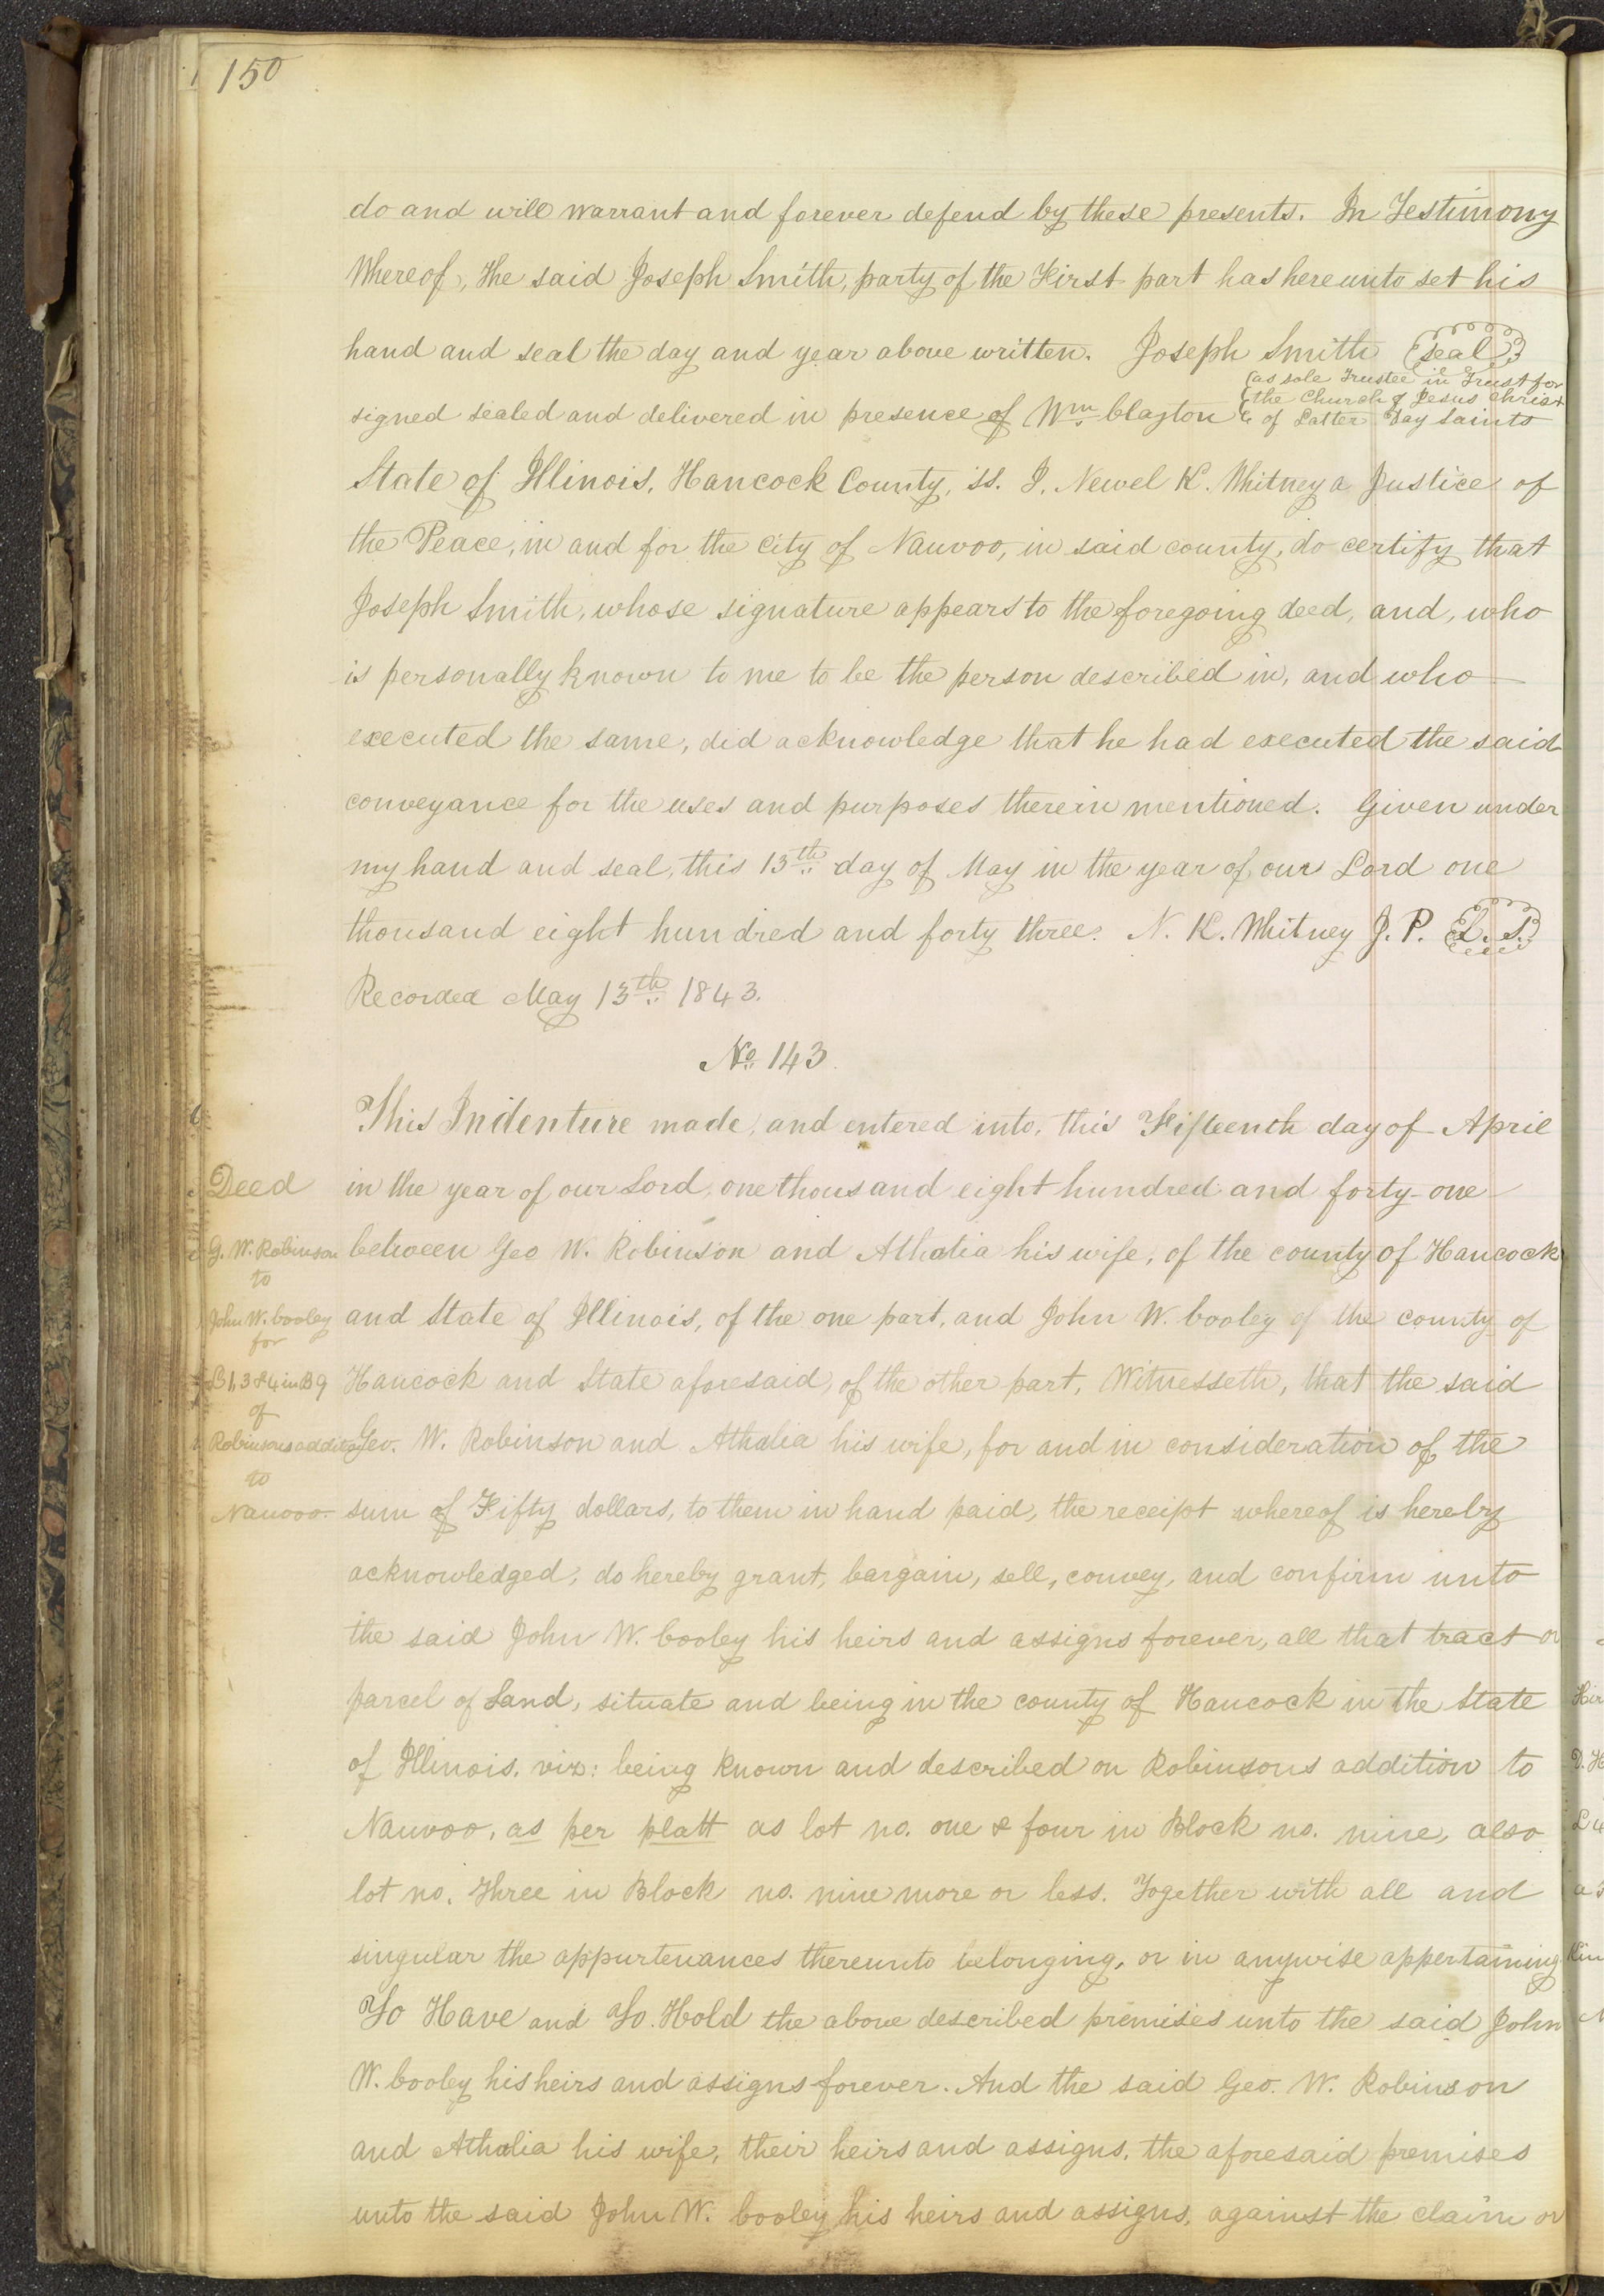 150
do and will warrant and forever defend by these presents. In Testimony
Whereof, the said Joseph Smith, party of the First part has hereunto set his
hand and seal the day and year above written. Joseph Smith (seal)
(as sole Trustee in Trust for
the Church of Jesus Christ
signed sealed and delivered in presence of Wm Clayton of Latter Day Saints
State of Illinois, Hancock County, ss. I, Newel K. Whitney a Justice of
the Peace, in and for the city of Nauvoo, in said county, do certify that
Joseph Smith, whose signature appears to the foregoing deed, and, who
is personally known to me to be the person described in, and who
executed the same, did acknowledge that he had executed the said
conveyance for the uses and purposes therein mentioned. Given under
my hand and seal, this 13th day of May in the year of our Lord one
thousand eight hundred and forty three. N. K. Whitney J. P. (L. S.)
Recorded May 13th 1843.
No. 143.
This Indenture made, and entered into, this Fifteenth day of April
Deed
in the year of our Lord, one thousand eight hundred and forty-one
G. W. Robinson
between Geo W. Robinson and Athalia his wife, of the county of Hancock
to
John W. Cooley
and State of Illinois, of the one part, and John W. Cooley of the county of
for
L 1, 3 & 4 in B 9
Hancock and State aforesaid, of the other part, Witnesseth, that the said
of
Robinsons addition
Geo. W. Robinson and Athalia his wife, for and in consideration of the
to
Nauvoo
sum of Fifty dollars, to them in hand paid, the receipt whereof is hereby
acknowledged, do hereby grant, bargain, sell, convey, and confirm unto
the said John W. Cooley his heirs and assigns forever, all that tract or
parcel of Land, situate and being in the county of Hancock in the State
of Illinois, viz: being known and described on Robinsons addition to
Nauvoo, as per platt as lot no. one & four in Block no. nine, also
lot no. Three in Block no. nine more or less. Together with all and
singular the appurtenances thereunto belonging, or in anywise appertaining
To Have and To Hold the above described premises unto the said John
W. Cooley his heirs and assigns forever. And the said Geo. W. Robinson
and Athalia his wife, their heirs and assigns, the aforesaid premises
unto the said John W. Cooley his heirs and assigns, against the claim or